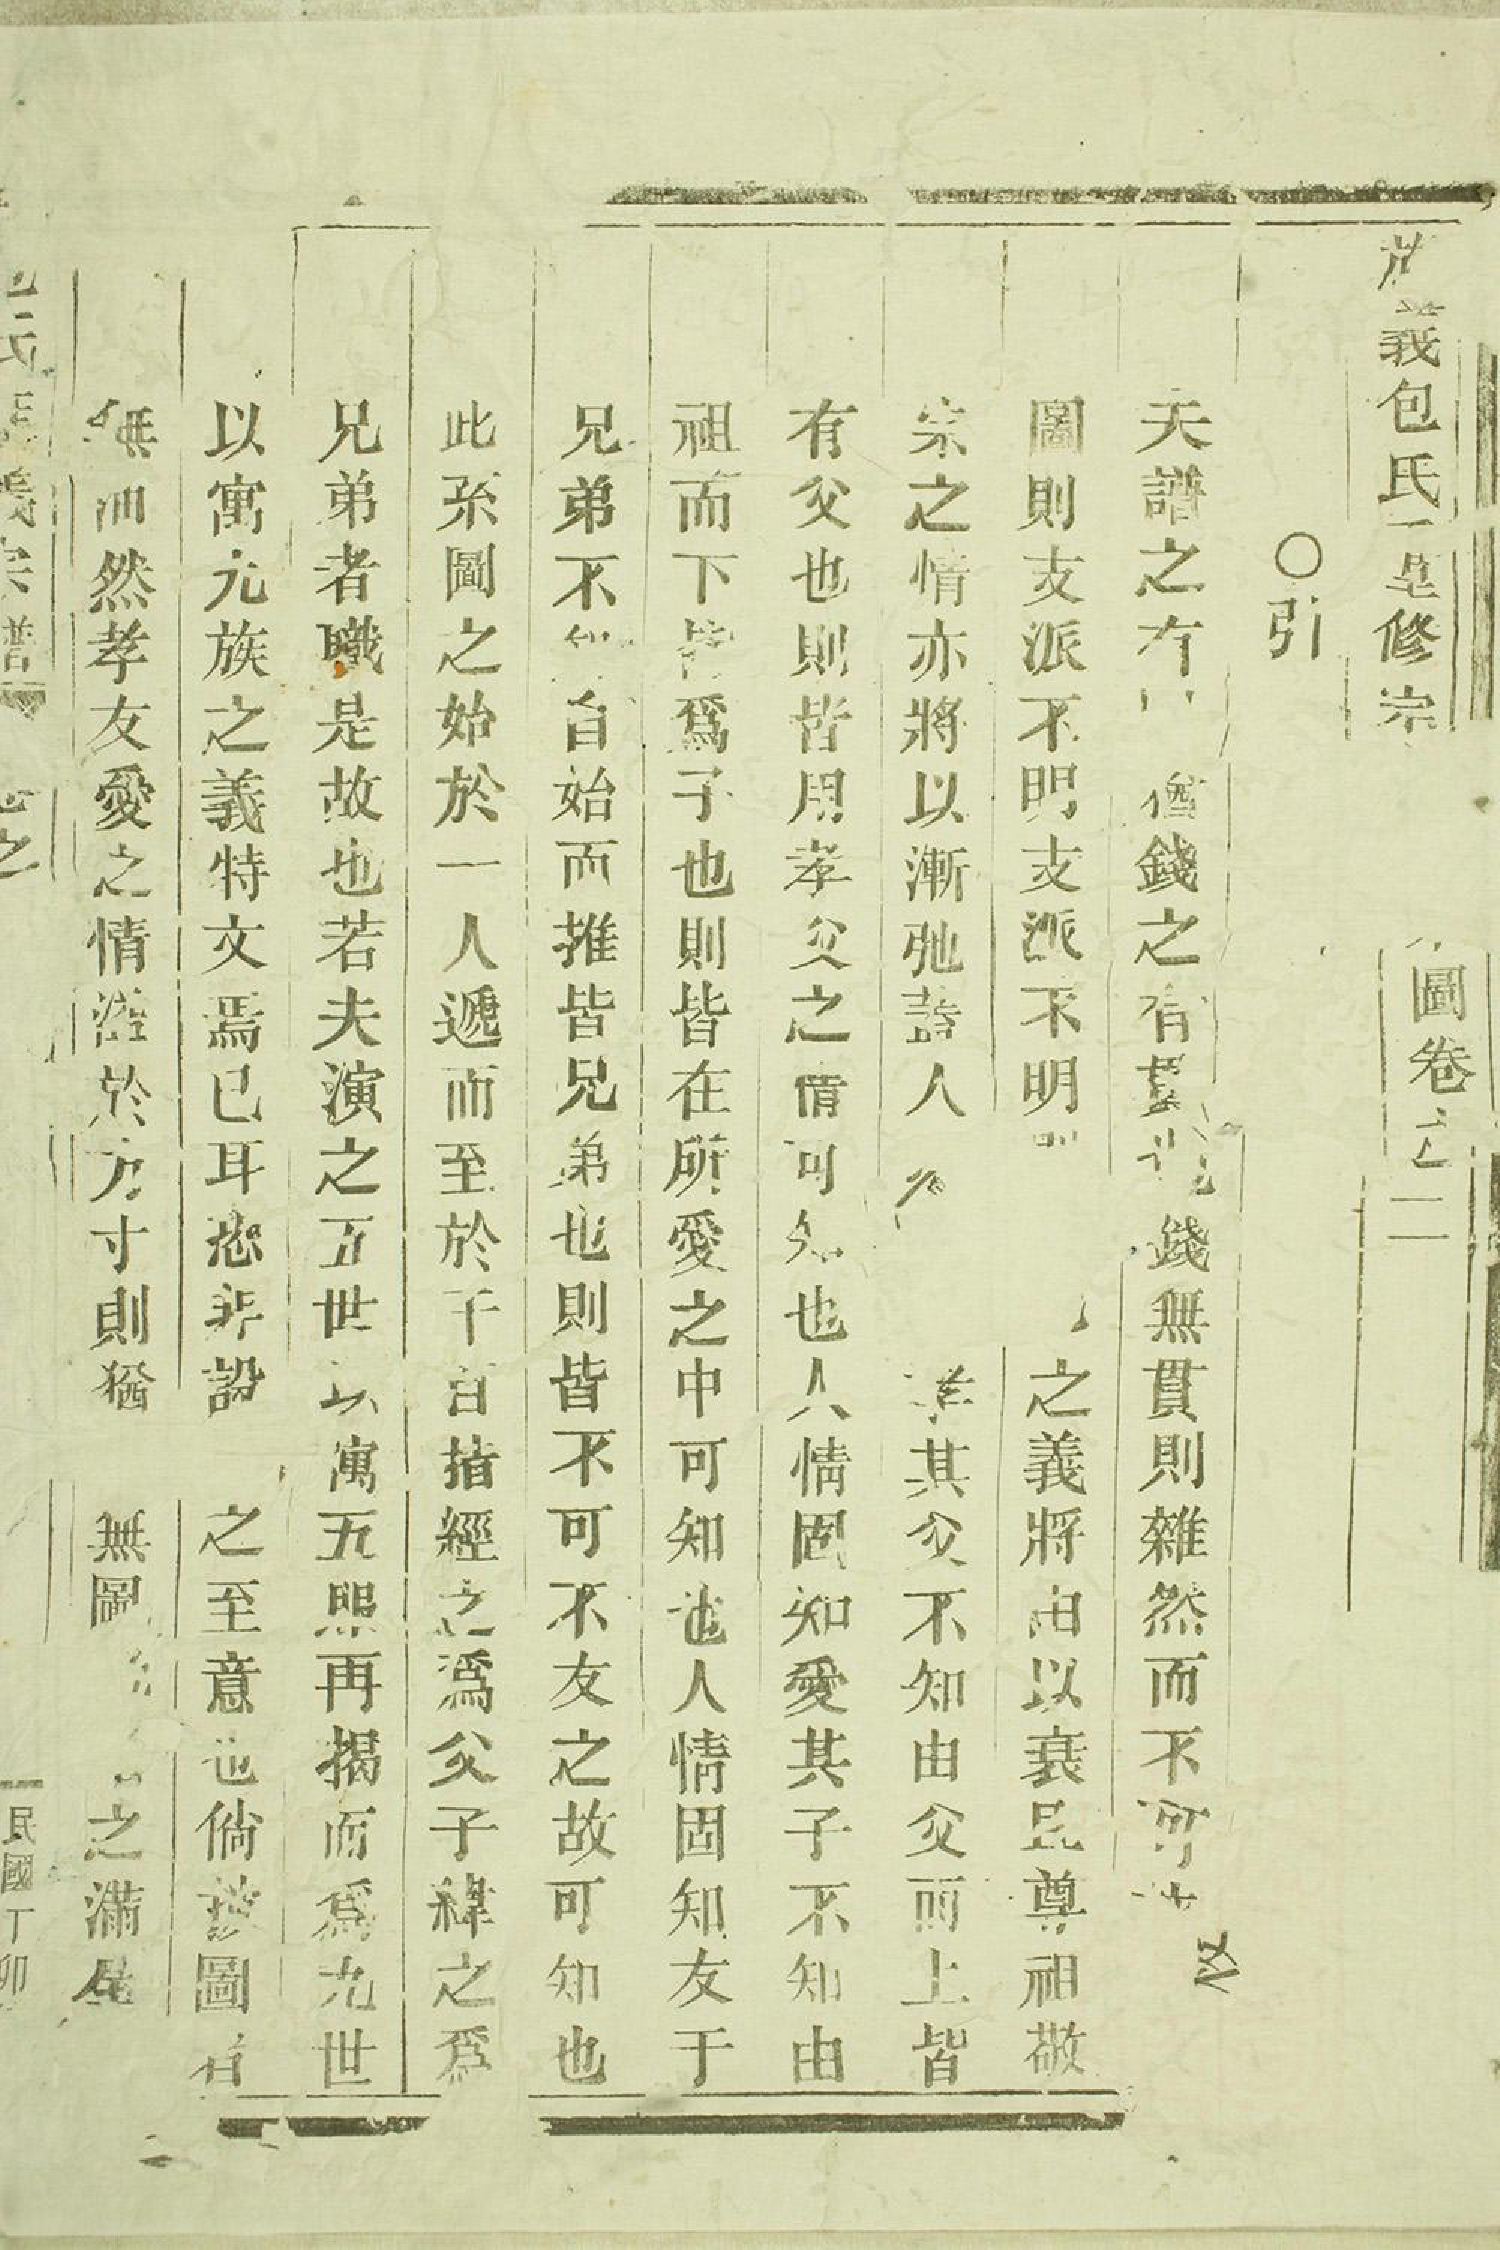 義包氏重修宗 圖卷之二
○引
夫譜之有 猶錢之有 錢無貫則雜然而不可
圖則支派不明支派不明 之義將由以衰且尊祖敬
宗之情亦將以漸弛 人 其父不知由父而上皆
有父也則皆用孝父之情可知也人情固知愛其子不知由
祖而下皆爲子也則皆在所愛之中可知也人情固知友于
兄弟不知自始而推皆兄弟也則皆不可不友之故可知也
此系圖之始於一人遞而至於千百措經之爲父子緯之爲
兄弟者職是故也若夫演之五世以寓五 再揭而爲九世
以寓元族之義特文焉已耳恐非設 之至意也倘披圖者
無油然孝友愛之情 於方寸則猶 無圖 之滿
氏 宗譜 之 民國丁卯